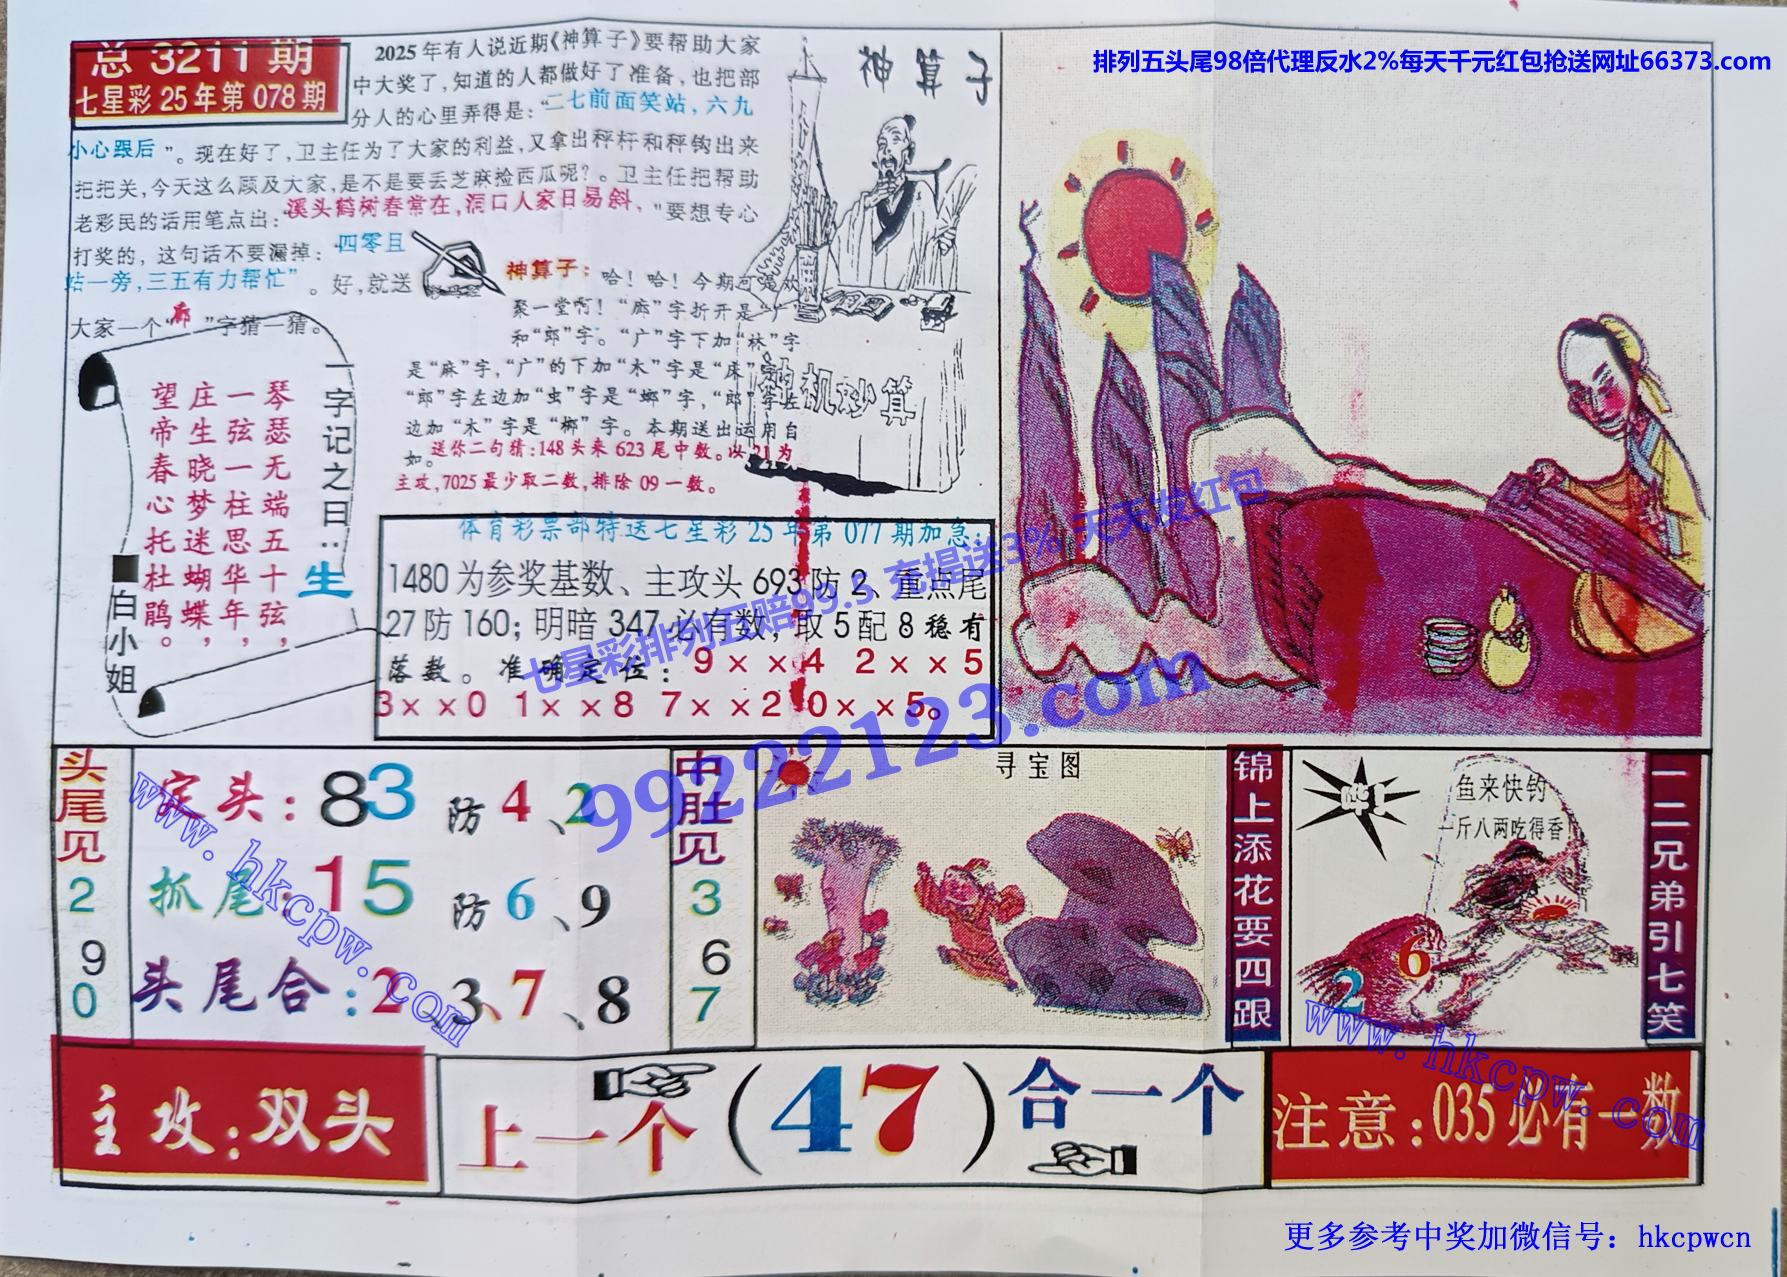 排列五头尾98倍代理反水2%每天千元红包抢送网址66373.com
总3211期
七星彩25年第078期
2025年有人说近期《神算子》要帮助大家
中大奖了,知道的人都做好了准备,也把部
分人的心里弄得是:“二七前面笑站,六九
小心跟后”。现在好了,卫主任为了大家的利益,又拿出秤杆和秤钩出来
把把关,今天这么顾及大家,是不是要丢芝麻捡西瓜呢?。卫主任把帮助
老彩民的话用笔点出:“溪头鹤树春常在,洞口人家日易斜,”要想专心
打奖的,这句话不要漏掉:四零且
站一旁,三五有力帮忙”。好,就送
大家一个“廊”字猜一猜。
神算子
神算子:哈!哈!今期可喜欢
聚一堂啊!“廊”字折开是“广”
和“郎”字。“广”字下加“林”字
是“麻”字,“广”的下加“木”字是“床”字
“郎”字左边加“虫”字是“螂”字,“郎”字左
边加“木”字是“榔”字。本期送出运用自
如。送你二句猜:148头来623尾中数。以21为
主攻,7025最少取二数,排除09一数。
神机妙算
一字记之曰:生
琴瑟无端五十弦,
一弦一柱思华年,
庄生晓梦迷蝴蝶,
望帝春心托杜鹃。
白小姐
体育彩票部特送七星彩25年第077期加急:
1480为参奖基数、主攻头693防2、重点尾
27防160;明暗347必有数,取5配8稳有
落数。准确定位:9××4 2××5
3××0 1××8 7××2 0××5。
七星彩排列五赔99.5 充提送3% 天天发红包
99222123.com
头尾见
2
9
0
定头:83防4、2
抓尾:15防6、9
头尾合:2、3、7、8
www.hkcpw.com
中肚见
3
6
7
寻宝图
锦上添花要四跟
鱼来快钓
一斤八两吃得香!
2
6
一二兄弟引七笑
www.hkcpw.com
主攻:双头
上一个(47)合一个
注意:035必有一数
更多参考中奖加微信号:hkcpwcn